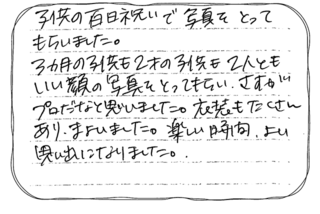 子供の百日祝いで写真をとって
もらいました。
3カ月の子供も2才の子供も2人とも
いい顔の写真をとってもらい、さすが
プロだなと思いました。衣装もたくさん
あり、まよいました。楽しい時間、よい
思い出になりました。